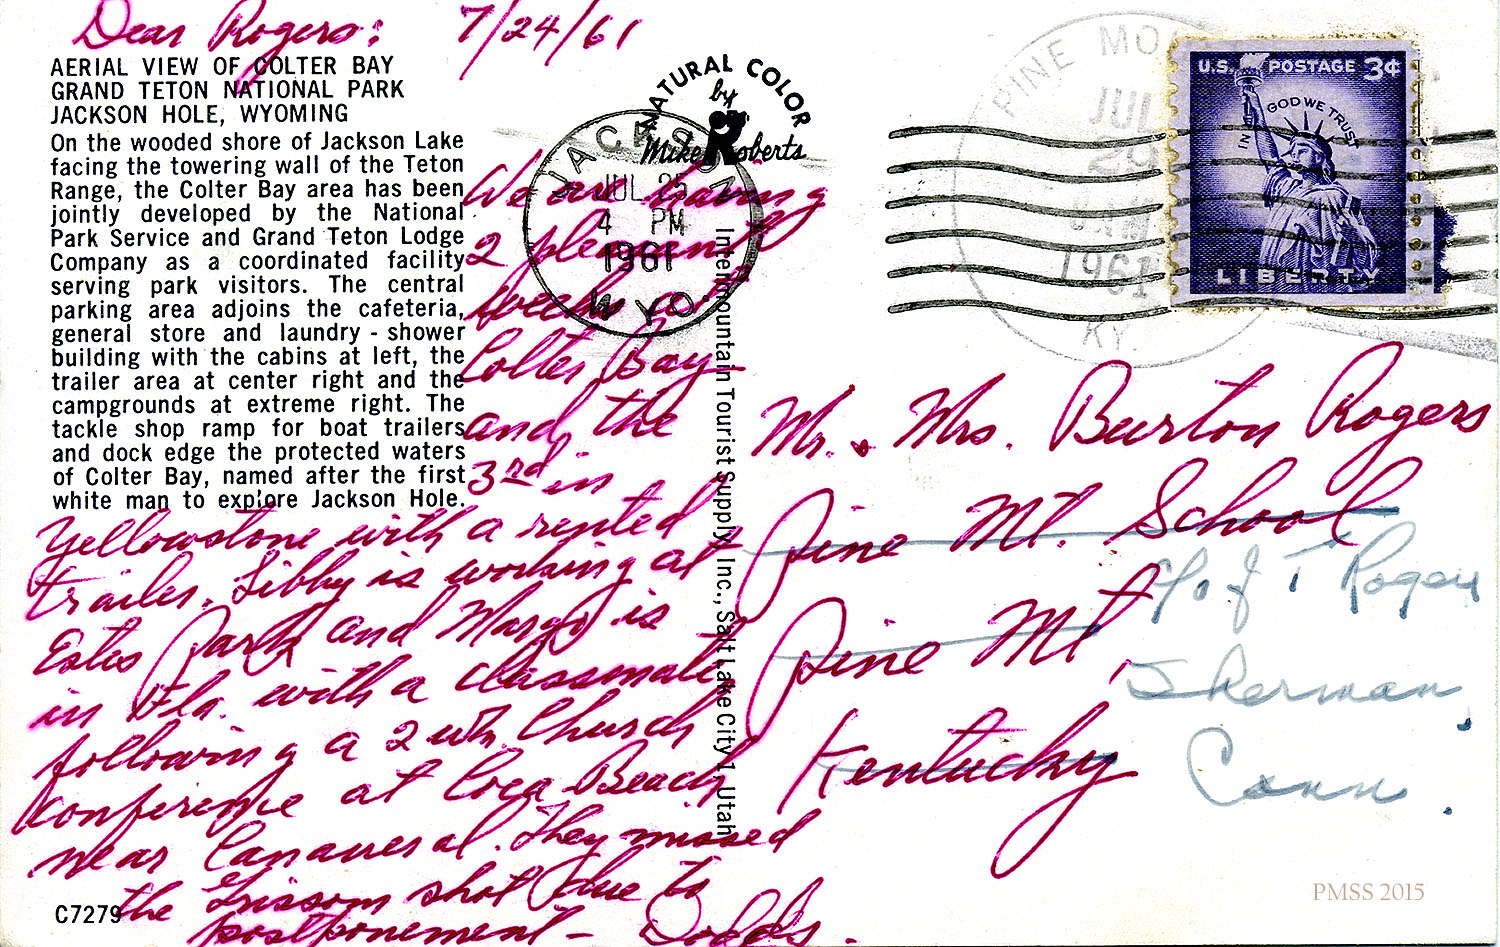 Dear Rogers: 7/24/61
AERIAL VIEW OF COLTER BAY
GRAND TETON NATIONAL PARK
JACKSON HOLE, WYOMING
On the wooded shore of Jackson Lake
facing the towering wall of the Teton
Range, the Colter Bay area has been
jointly developed by the National
Park Service and Grand Teton Lodge
Company as a coordinated facility
serving park visitors. The central
parking area adjoins the cafeteria,
general store and laundry - shower
building with the cabins at left, the
trailer area at center right and the
campgrounds at extreme right. The
tackle shop ramp for boat trailers
and dock edge the protected waters
of Colter Bay, named after the first
white man to explore Jackson Hole.
We are having
2 pleasant
weeks at
Colter Bay
and the
3rd in
Yellowstone with a rented
trailer. Libby is working at
Estes Park and Margo is
in Fla. with a classmate
following a 2 wk. Church
conference at Coca Beach
near Canaveral. They missed
the Grissom shot due to
postponement - Dodds.
C7279
NATURAL COLOR
by
Mike Roberts
JACKSON
JUL 25
4 PM
1961
WYO.
Intermountain Tourist Supply, Inc., Salt Lake City 1, Utah
PINE MO
JUL
AM
1961
KY.
U.S. POSTAGE 3¢
IN GOD WE TRUST
LIBERTY
Mr. & Mrs. Burton Rogers
Pine Mt. School
Pine Mt.
Kentucky
c/o J T Rogers
Sherman,
Conn.
PMSS 2015